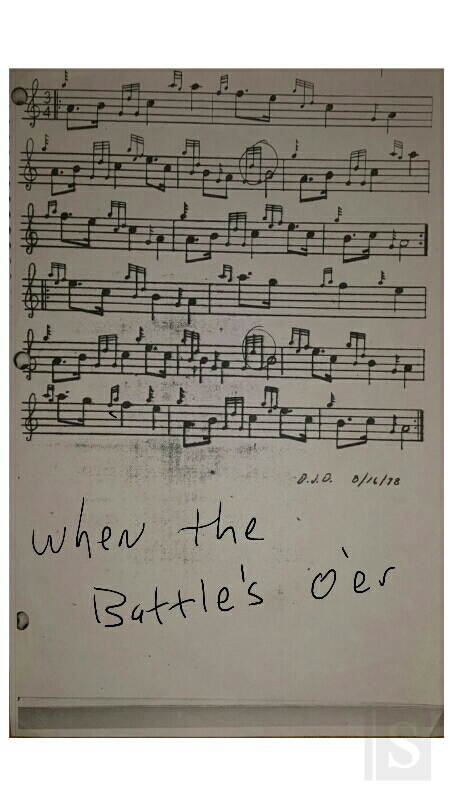 3
4
D.J.D. 8/16/78
when the
Battle's o'er
S